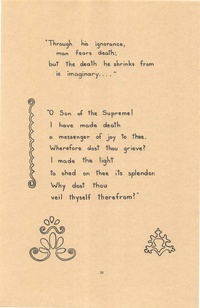 "Through his ignorance,
man fears death;
but the death he shrinks from
is imaginary...."
"O Son of the Supreme!
I have made death
a messenger of joy to thee.
Wherefore dost thou grieve?
I made the light
to shed on thee its splendor.
Why dost thou
veil thyself therefrom?"